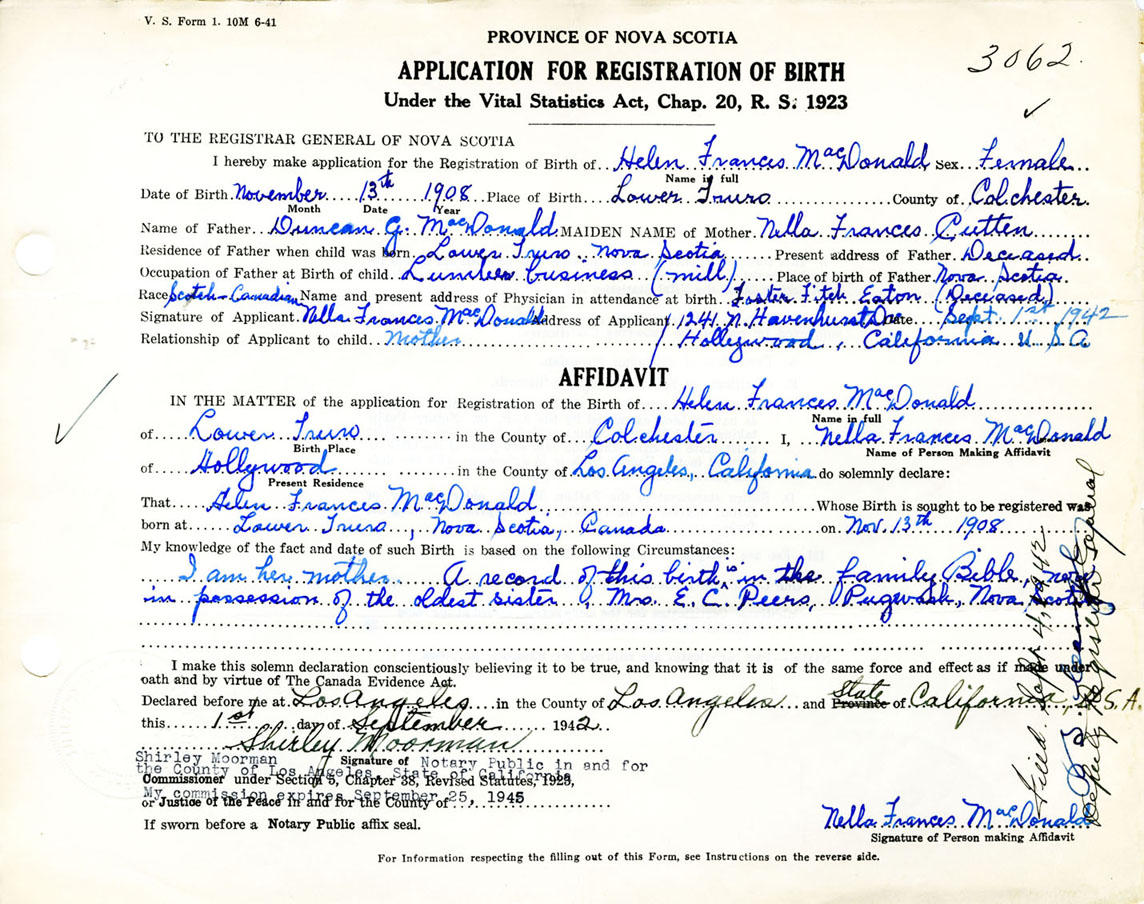 V. S. Form 1. 10M 6-41
PROVINCE OF NOVA SCOTIA
3062.
APPLICATION FOR REGISTRATION OF BIRTH
Under the Vital Statistics Act, Chap. 20, R. S. 1923
TO THE REGISTRAR GENERAL OF NOVA SCOTIA
I hereby make application for the Registration of Birth of Helen Frances MacDonald Sex Female
Name in full
Date of Birth November 13th 1908 Place of Birth Lower Truro County of Colchester
Month Date Year
Name of Father Duncan G. MacDonald MAIDEN NAME of Mother Nella Frances Cutten
Residence of Father when child was born Lower Truro Nova Scotia Present address of Father Deceased
Occupation of Father at Birth of child Lumber business (mill) Place of birth of Father Nova Scotia
Race Scotch-Canadian Name and present address of Physician in attendance at birth Foster Fitch Eaton (Deceased)
Signature of Applicant Nella Frances MacDonald Address of Applicant 1241 N. Havenhurst Dr Date Sept. 1st 1942
Relationship of Applicant to child mother Hollywood, California U.S.A
AFFIDAVIT
IN THE MATTER of the application for Registration of the Birth of Helen Frances MacDonald
Name in full
of Lower Truro in the County of Colchester I, Nella Frances MacDonald
Birth Place Name of Person Making Affidavit
of Hollywood in the County of Los Angeles, California do solemnly declare:
Present Residence
That Helen Frances MacDonald Whose Birth is sought to be registered was
born at Lower Truro, Nova Scotia, Canada on Nov. 13th 1908
My knowledge of the fact and date of such Birth is based on the following Circumstances:
I am her mother. A record of this birth is in the family Bible, now
in possession of the oldest sister, Mrs. E. C. Peers, Pugwash, Nova Scotia
I make this solemn declaration conscientiously believing it to be true, and knowing that it is of the same force and effect as if made under
oath and by virtue of The Canada Evidence Act.
Declared before me at Los Angeles in the County of Los Angeles and Province State of California, U.S.A.
this 1st day of September 1942
Shirley Moorman
Shirley Moorman Signature of Notary Public in and for
the County of Los Angeles, State of California
Commissioner under Section 5, Chapter 38, Revised Statutes, 1923,
My commission expires September 25, 1945
or Justice of the Peace in and for the County of
If sworn before a Notary Public affix seal.
Nella Frances MacDonald
Signature of Person making Affidavit
For Information respecting the filling out of this Form, see Instructions on the reverse side.
Filed Sept 4, 1942
Deputy Registrar General